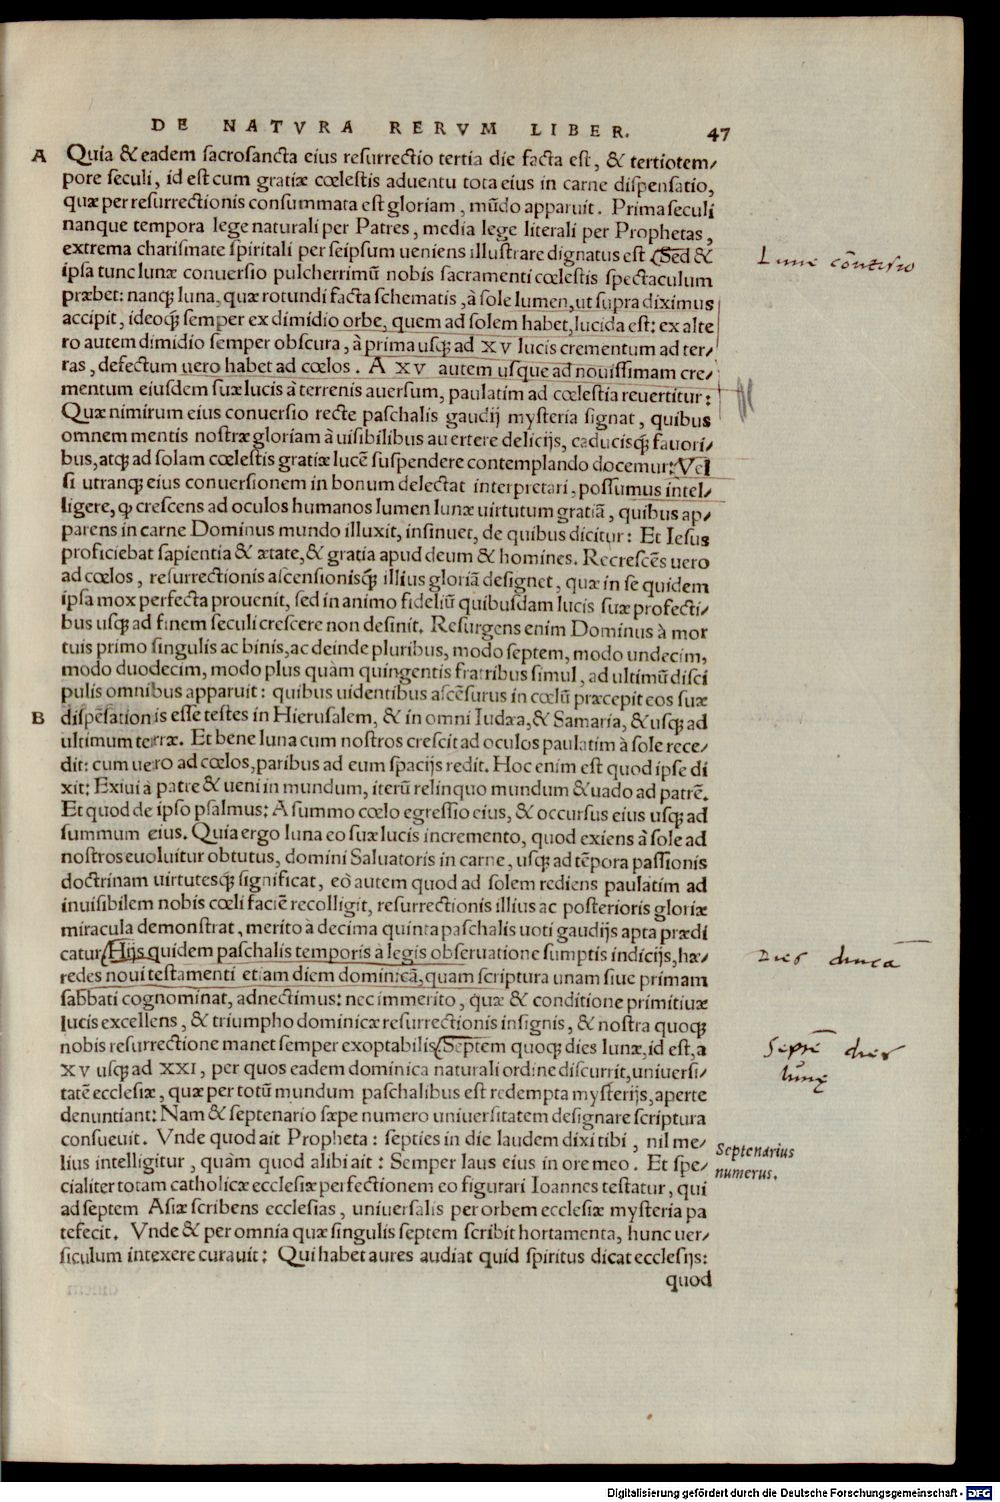 DE NATVRA RERVM LIBER. 47
A Quia & eadem sacrosancta eius resurrectio tertia die facta est, & tertio tem/
pore seculi, id est cum gratiæ cœlestis aduentu tota eius in carne dispensatio,
quæ per resurrectionis consummata est gloriam, mũdo apparuit. Prima seculi
nanque tempora lege naturali per Patres, media lege literali per Prophetas,
extrema charismate spiritali per seipsum ueniens illustrare dignatus est. Sed &
ipsa tunc lunæ conuersio pulcherrimũ nobis sacramenti cœlestis spectaculum
præbet: nanq; luna, quæ rotundi facta schematis, à sole lumen, ut supra diximus
accipit, ideoq; semper ex dimidio orbe, quem ad solem habet, lucida est: ex alte
ro autem dimidio semper obscura, à prima usq; ad XV lucis crementum ad ter/
ras, defectum uero habet ad cœlos. A XV autem usque ad nouissimam cre/
mentum eiusdem suæ lucis à terrenis auersum, paulatim ad cœlestia reuertitur:
Quæ nimirum eius conuersio recte paschalis gaudij mysteria signat, quibus
omnem mentis nostræ gloriam à uisibilibus auertere delicijs, caducisq; fauori/
bus, atq; ad solam cœlestis gratiæ lucẽ suspendere contemplando docemur: Vel
si utranq; eius conuersionem in bonum delectat interpretari, possumus intel/
ligere, ꝙ crescens ad oculos humanos lumen lunæ uirtutum gratiã, quibus ap/
parens in carne Dominus mundo illuxit, insinuet, de quibus dicitur: Et Iesus
proficiebat sapientia & ætate, & gratia apud deum & homines. Recrescẽs uero
ad cœlos, resurrectionis ascensionisq; illius gloriã designet, quæ in se quidem
ipsa mox perfecta prouenit, sed in animo fideliũ quibusdam lucis suæ profecti/
bus usq; ad finem seculi crescere non desinit. Resurgens enim Dominus à mor
tuis primo singulis ac binis, ac deinde pluribus, modo septem, modo undecim,
modo duodecim, modo plus quàm quingentis fratribus simul, ad ultimũ disci
pulis omnibus apparuit: quibus uidentibus ascẽsurus in cœlũ præcepit eos suæ
B dispẽsationis esse testes in Hierusalem, & in omni Iudæa, & Samaria, & usq; ad
ultimum terræ. Et bene luna cum nostros crescit ad oculos paulatim à sole rece/
dit: cum uero ad cœlos, paribus ad eum spacijs redit. Hoc enim est quod ipse di
xit: Exiui à patre & ueni in mundum, iterũ relinquo mundum & uado ad patrẽ.
Et quod de ipso psalmus: A summo cœlo egressio eius, & occursus eius usq; ad
summum eius. Quia ergo luna eo suæ lucis incremento, quod exiens à sole ad
nostros euoluitur obtutus, domini Saluatoris in carne, usq; ad tẽpora passionis
doctrinam uirtutesq; significat, eò autem quod ad solem rediens paulatim ad
inuisibilem nobis cœli faciẽ recolligit, resurrectionis illius ac posterioris gloriæ
miracula demonstrat, merito à decima quinta paschalis uoti gaudijs apta prædi
catur. Hijs quidem paschalis temporis à legis obseruatione sumptis indicijs, hæ/
redes noui testamenti etiam diem dominicã, quam scriptura unam siue primam
sabbati cognominat, adnectimus: nec immerito, quæ & conditione primitiuæ
lucis excellens, & triumpho dominicæ resurrectionis insignis, & nostra quoq;
nobis resurrectione manet semper exoptabilis. Septem quoq; dies lunæ, id est, a
XV usq; ad XXI, per quos eadem dominica naturali ordine discurrit, uniuersi/
tatẽ ecclesiæ, quæ per totũ mundum paschalibus est redempta mysterijs, aperte
denuntiant: Nam & septenario sæpe numero uniuersitatem designare scriptura
consueuit. Vnde quod ait Propheta: septies in die laudem dixi tibi, nil me/
lius intelligitur, quàm quod alibi ait: Semper laus eius in ore meo. Et spe/
cialiter totam catholicæ ecclesiæ perfectionem eo figurari Ioannes testatur, qui
ad septem Asiæ scribens ecclesias, uniuersalis per orbem ecclesiæ mysteria pa
tefecit. Vnde & per omnia quæ singulis septem scribit hortamenta, hunc uer/
siculum intexere curauit: Qui habet aures audiat quid spiritus dicat ecclesijs:
quod
Lune cõuersio
Dies dnica
Septẽ dies
lunę
Septenarius
numerus.
Digitalisierung gefördert durch die Deutsche Forschungsgemeinschaft - DFG